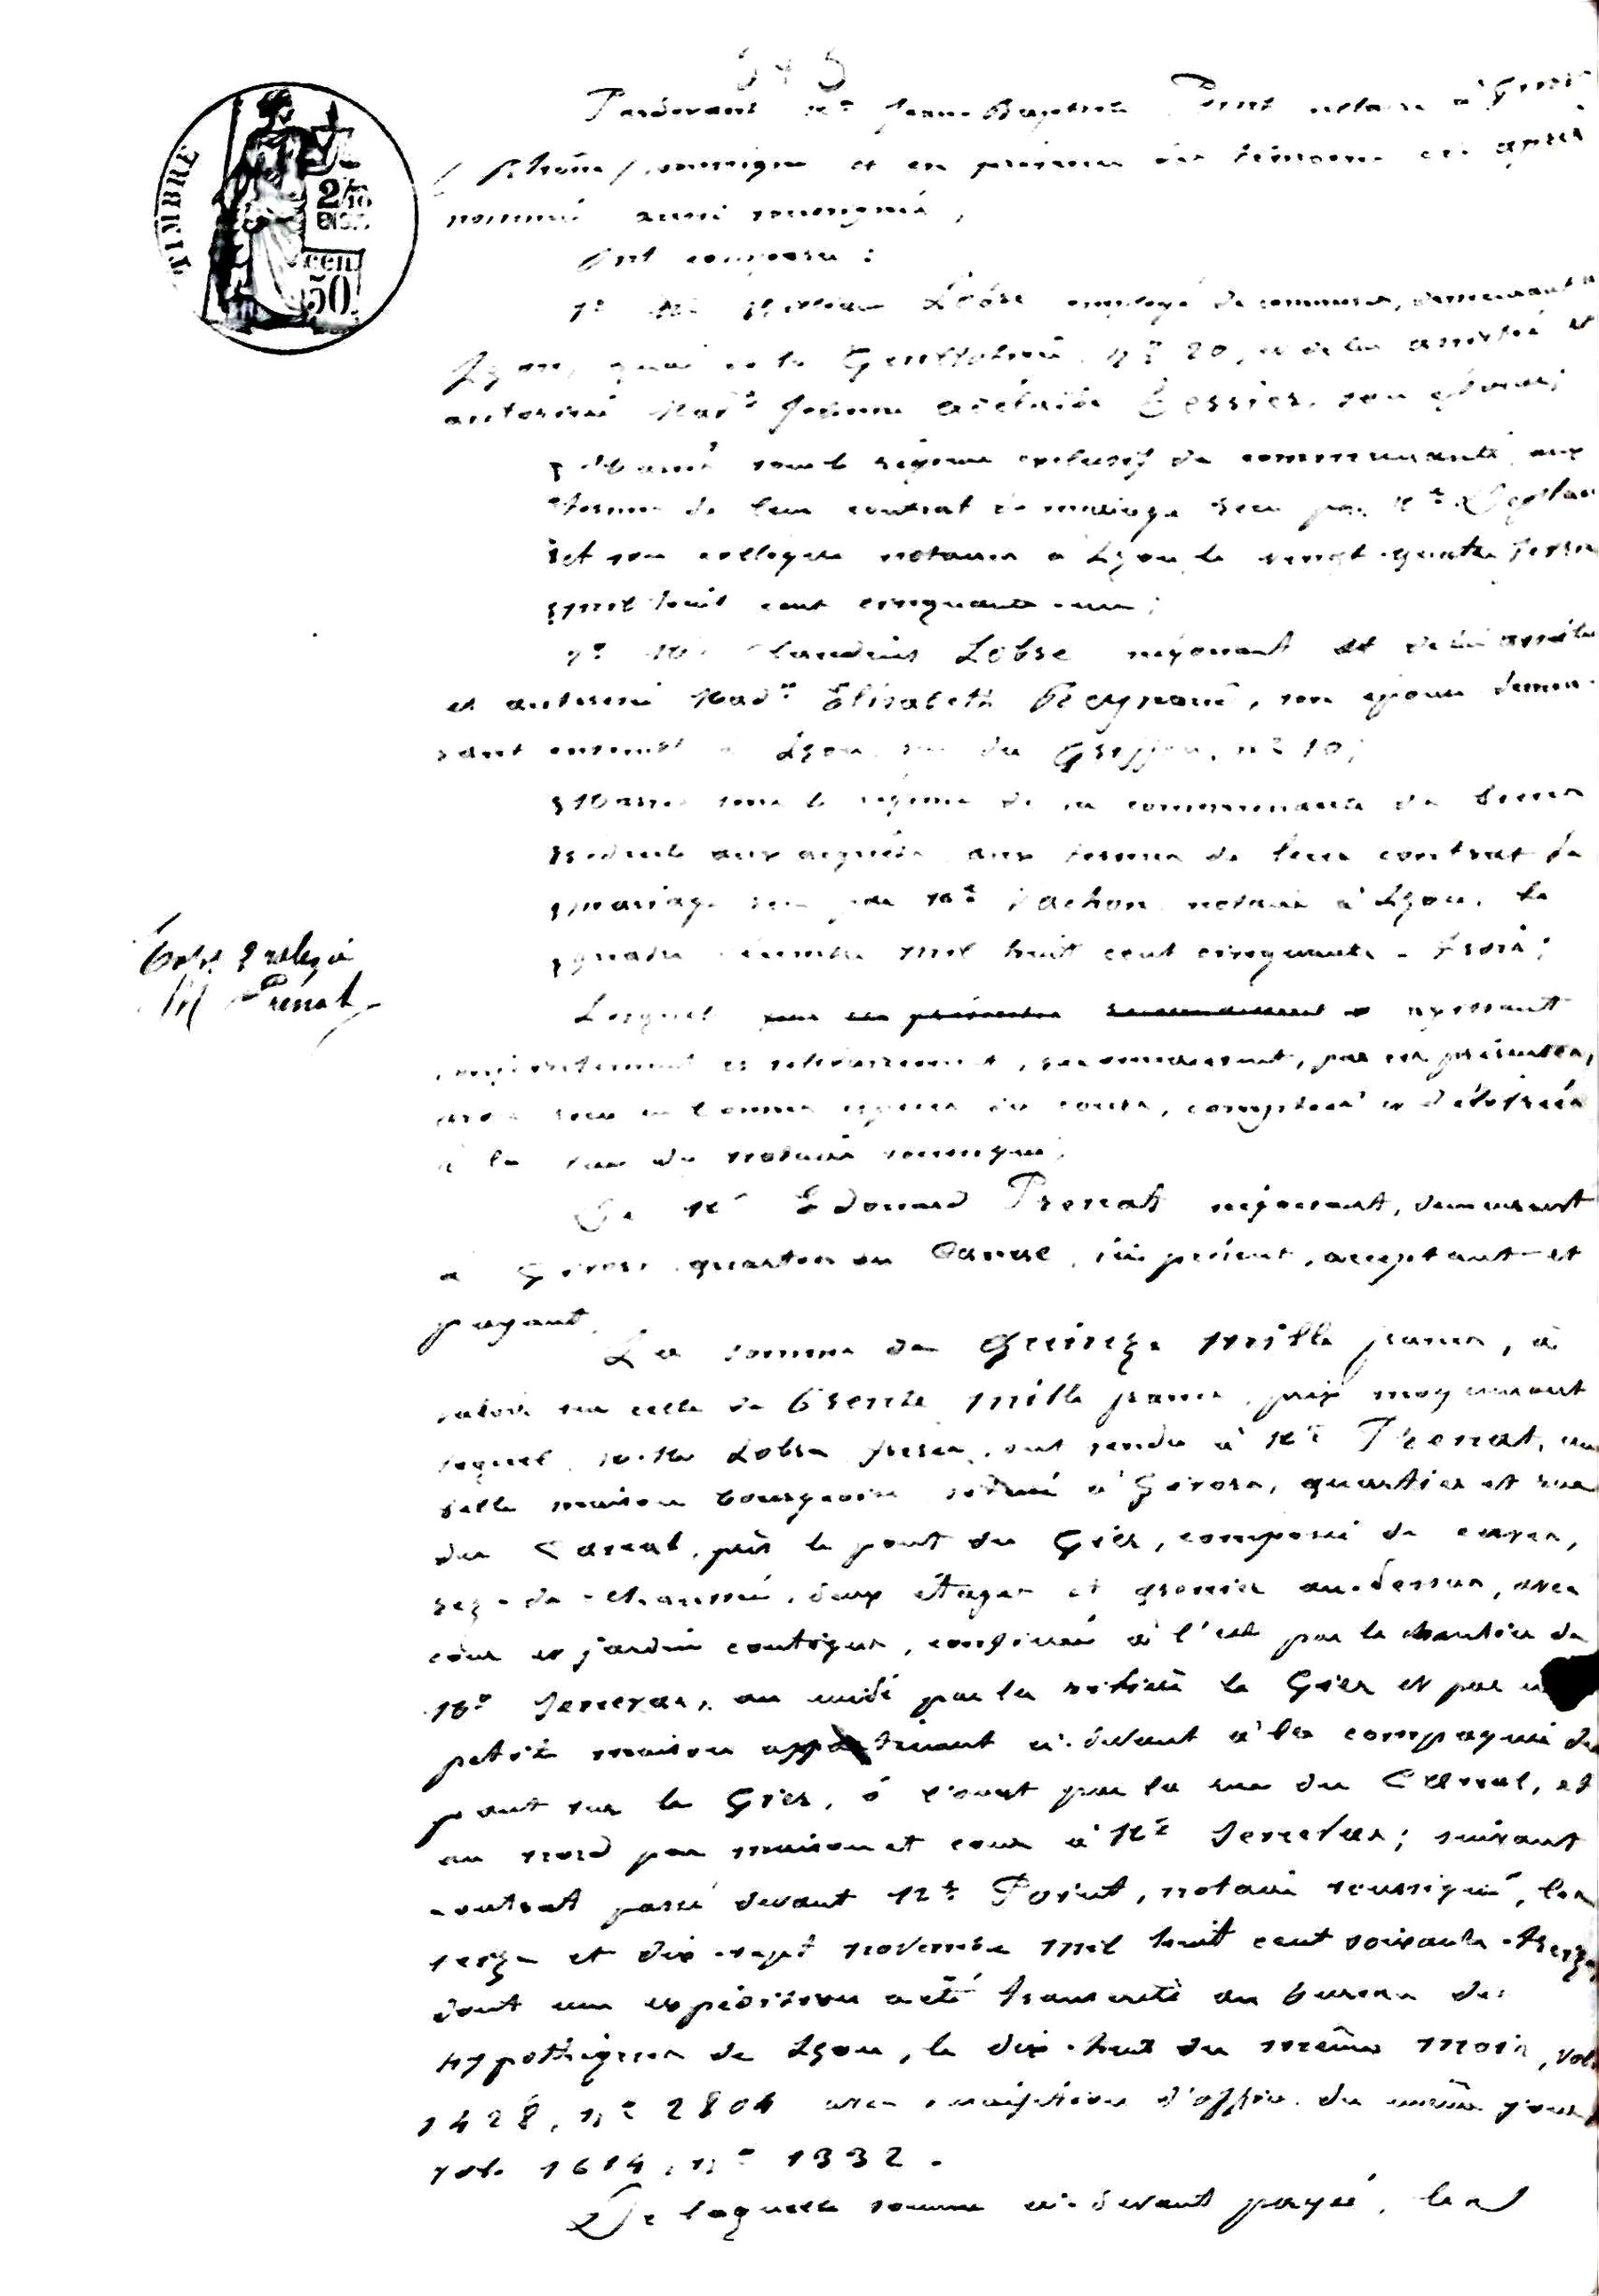 TIMBRE
2/10
50 cen
Pardevant Me Jean-Baptiste Point notaire à Givors
(Rhône) soussigné et en présence des témoins ci-après
nommés aussi soussignés,
Ont comparu :
1o Mr Lobre employé de commerce, demeurant à
Lyon, quai de la no 20, et de lui assistée et
autorisée Made Jeanne Adélaïde Tessier, son épouse;
Mariés sous le régime exclusif de communauté, aux
termes de leur contrat de mariage reçu par Me
et son collègue notaires à Lyon le vingt-quatre
mil huit cent cinquante-un;
2o Mr Claudius Lobre négociant et de lui assistée
et autorisée Made Elisabeth Reynaud, son épouse demeu-
rant ensemble à Lyon, rue du Griffon, no 10;
Mariés sous le régime de la communauté de biens
réduite aux acquêts, aux termes de leur contrat de
mariage reçu par Me Vachon notaire à Lyon, le
quatre mil huit cent cinquante-trois;
Lesquels pour ces présentes reconnaissent agissant
conjointement et solidairement, reconnaissent, par ces présentes,
avoir reçu en bonnes espèces de cours, comptées et délivrées
à la vue du notaire soussigné;
De Mr Edouard Prenat négociant, demeurant
à Givors quartier du Canal, ici présent, acceptant et
payant,
La somme de Quinze mille francs, à
valoir sur celle de Trente mille francs, prix moyennant
lequel, MM. Lobre frères, ont vendu à Mr Prenat, une
belle maison bourgeoise située à Givors, quartier et rue
du Canal, près le pont du Gier, composée de caves,
rez-de-chaussée, deux étages et grenier au-dessus, avec
cour et jardin contigus, confinés à l'est par le chantier de
Mr au midi par la rivière le Gier et par
petite maison appartenant ci-devant à la compagnie du
pont sur le Gier, à l'ouest par la rue du Canal, et
au nord par maison et cour à Mr ; suivant
contrat passé devant Me Point, notaire soussigné, les
seize et dix-sept novembre mil huit cent soixante-treize
dont une expédition a été transcrite au bureau des
hypothèques de Lyon, le dix-huit du même mois, vol.
1428, no 2804 avec inscription d'office du même jour
vol. 1614, no 1332.
De laquelle somme ci-devant payée, les
M Prenat